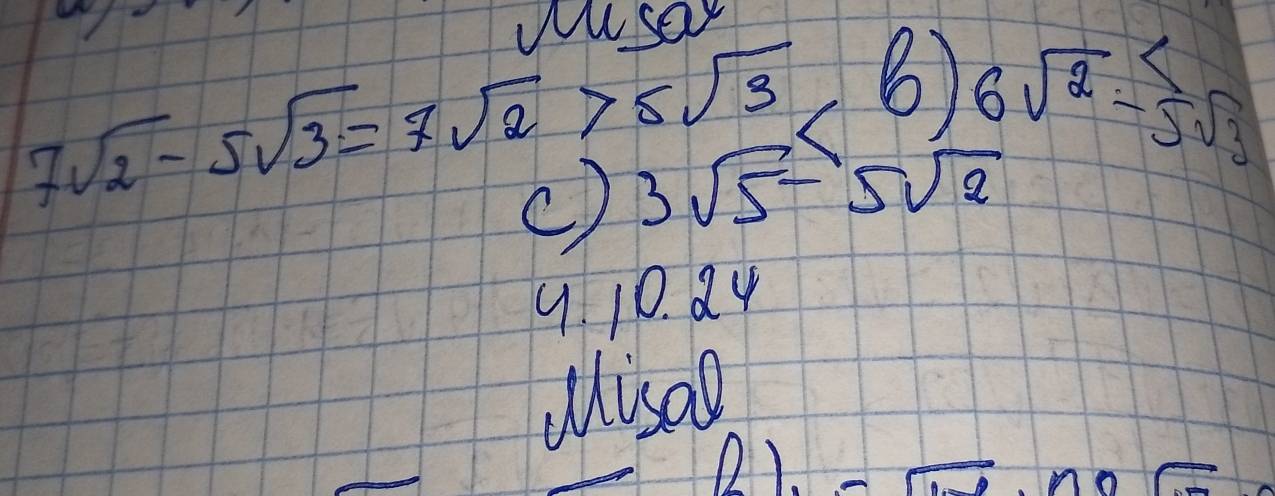 Misal
7√2 - 5√3 = 7√2 > 5√3
b) 6√2 - < 5√3
c) 3√5 - < 5√2
4.10.24
Misal
b)